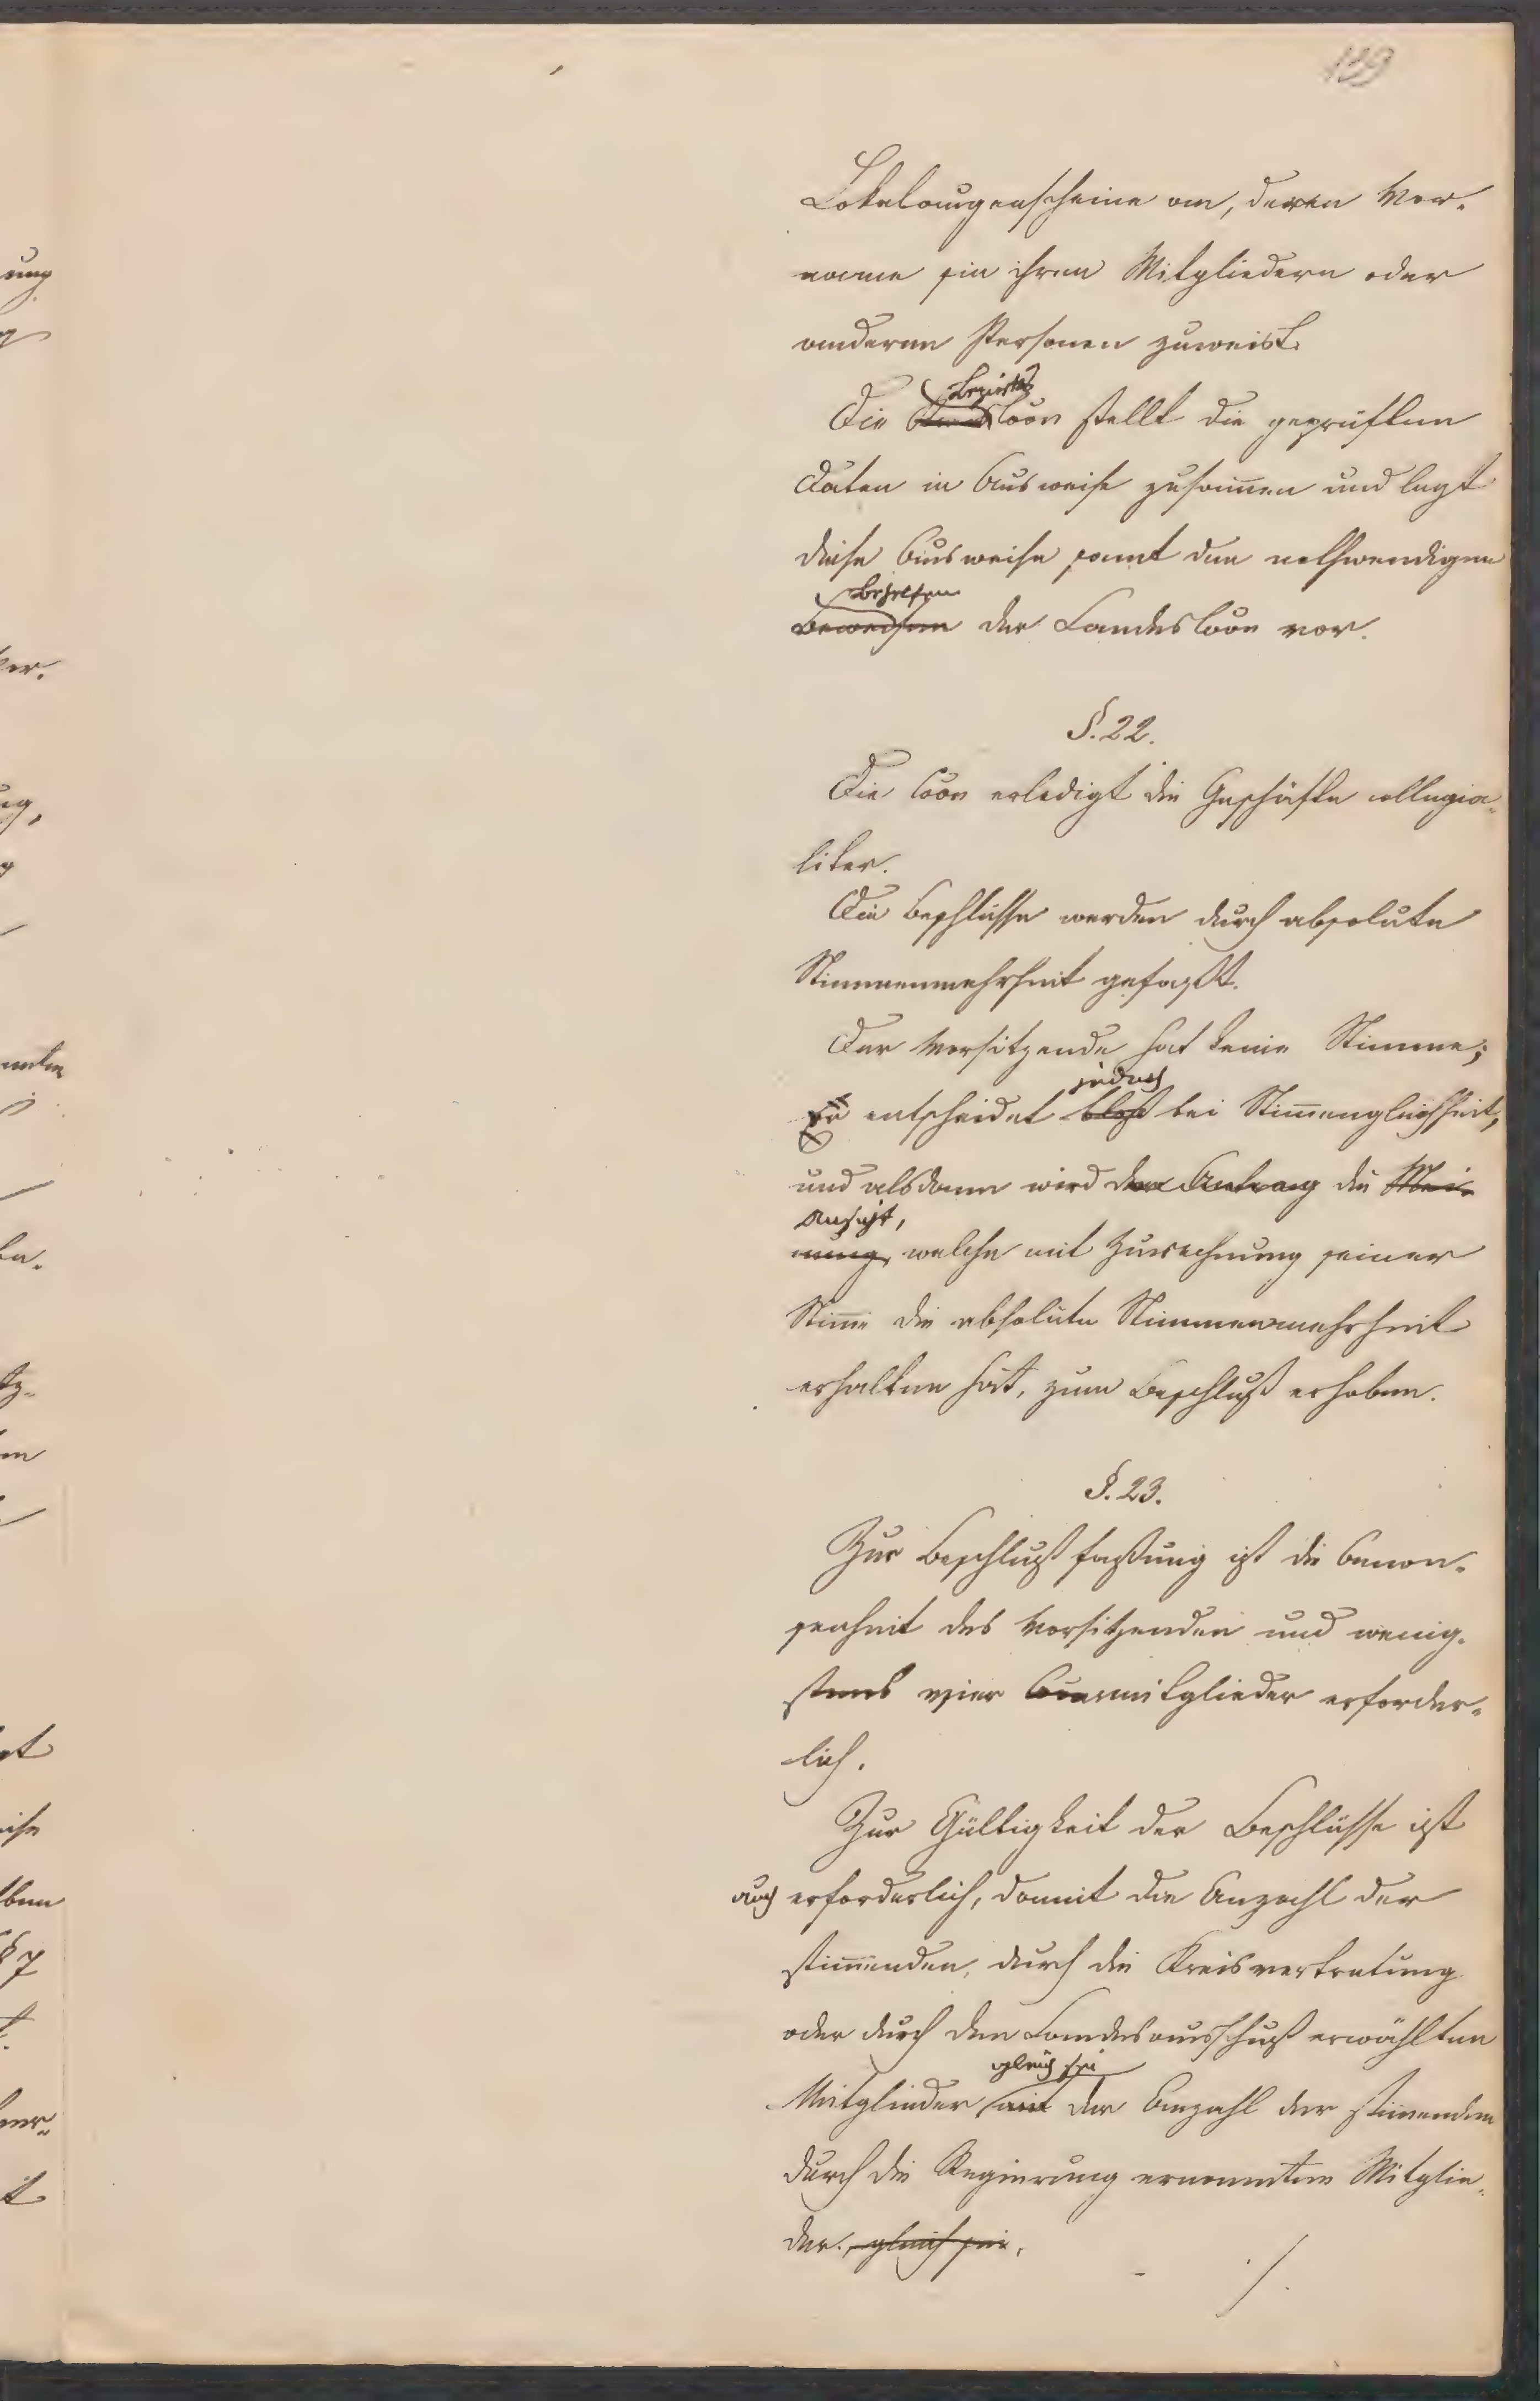 139
Lokalaugenscheine an, deren Vor-
name sie ihren Mitgliedern oder
anderen Personen zuweist.
Bezirks
Die Coon stellt die geprüften
Daten in Ausweise zusam̅en und legt
diese Ausweise samt den nothwendigen
Behelfen
Beweisen der Landescoon vor.
§. 22.
Die Coon erledigt die Geschäfte collegia-
liter.
Die Beschlüsse werden durch absolute
Stimmenmehrheit gefaßt.
Der Vorsitzende hat keine Stimme;
jedoch
Er entscheidet bloß bei Stim̅engleichheit,
und alsdann wird der Antrag die Mei-
Ansicht,
nung, welche mit Zurechnung seiner
Stim̅e die absolute Stimmenmehrheit
erhalten hat, zum Beschluß erhoben.
§. 23.
Zur Beschlußfaßung ist die Anwe-
senheit des Vorsitzenden und wenig-
stens vier Coonsmitglieder erforder-
lich.
Zur Gültigkeit der Beschlüsse ist
auch erforderlich, damit die Anzahl der
stim̅enden, durch die Kreisvertretung
oder durch den Landesausschuß erwählten
gleich sei
Mitglieder mit der Anzahl der stim̅enden
durch die Regierung ernannten Mitglie-
der. gleich sei.
./.